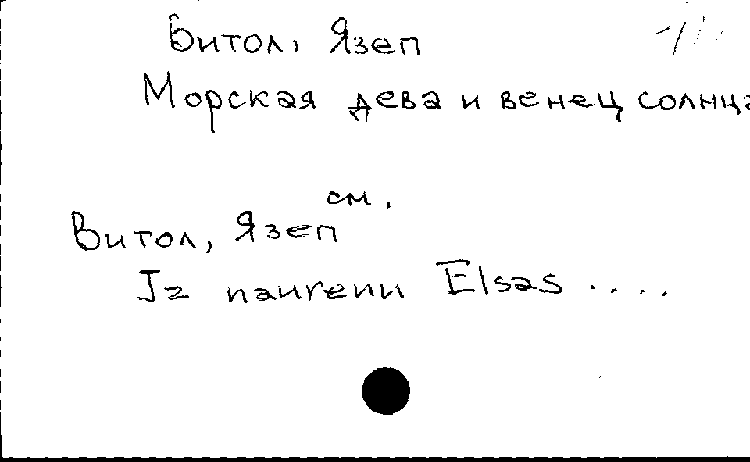 Витол, Язеп
Морская дева и венец солнца
см.
Витол, Язеп
Ja naureni Elsas ....